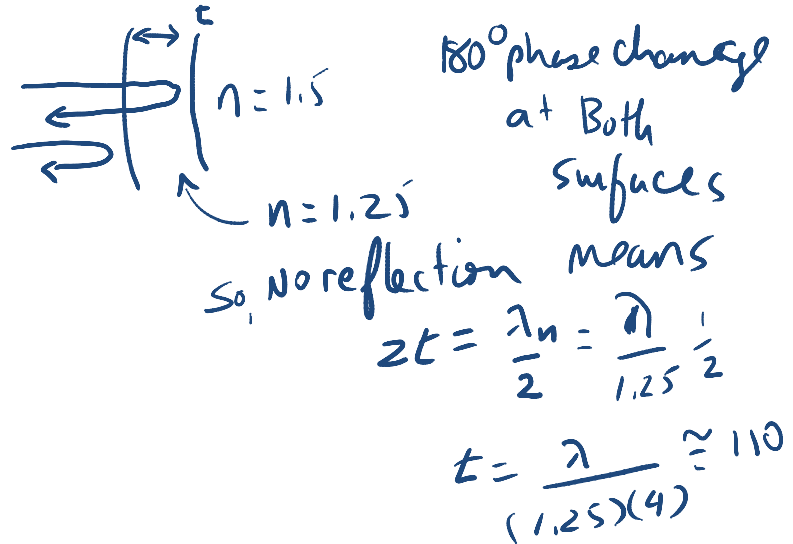 t
n = 1.5
n = 1.25
180° phase change
at Both
surfaces
So, No reflection means
2t = λn/2 = λ/1.25 1/2
t = λ/(1.25)(4) ≅ 110